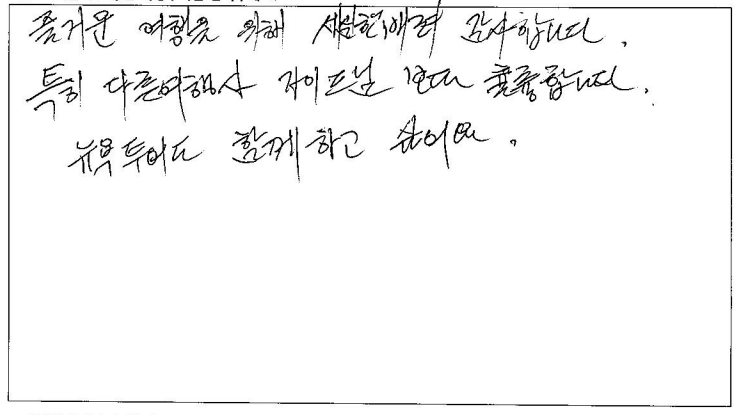 즐거운 여행을 위해 세심한 배려 감사합니다.
특히 다른여행사 가이드님 보다 훌륭합니다.
뉴욕투어도 함께하고 싶어요.